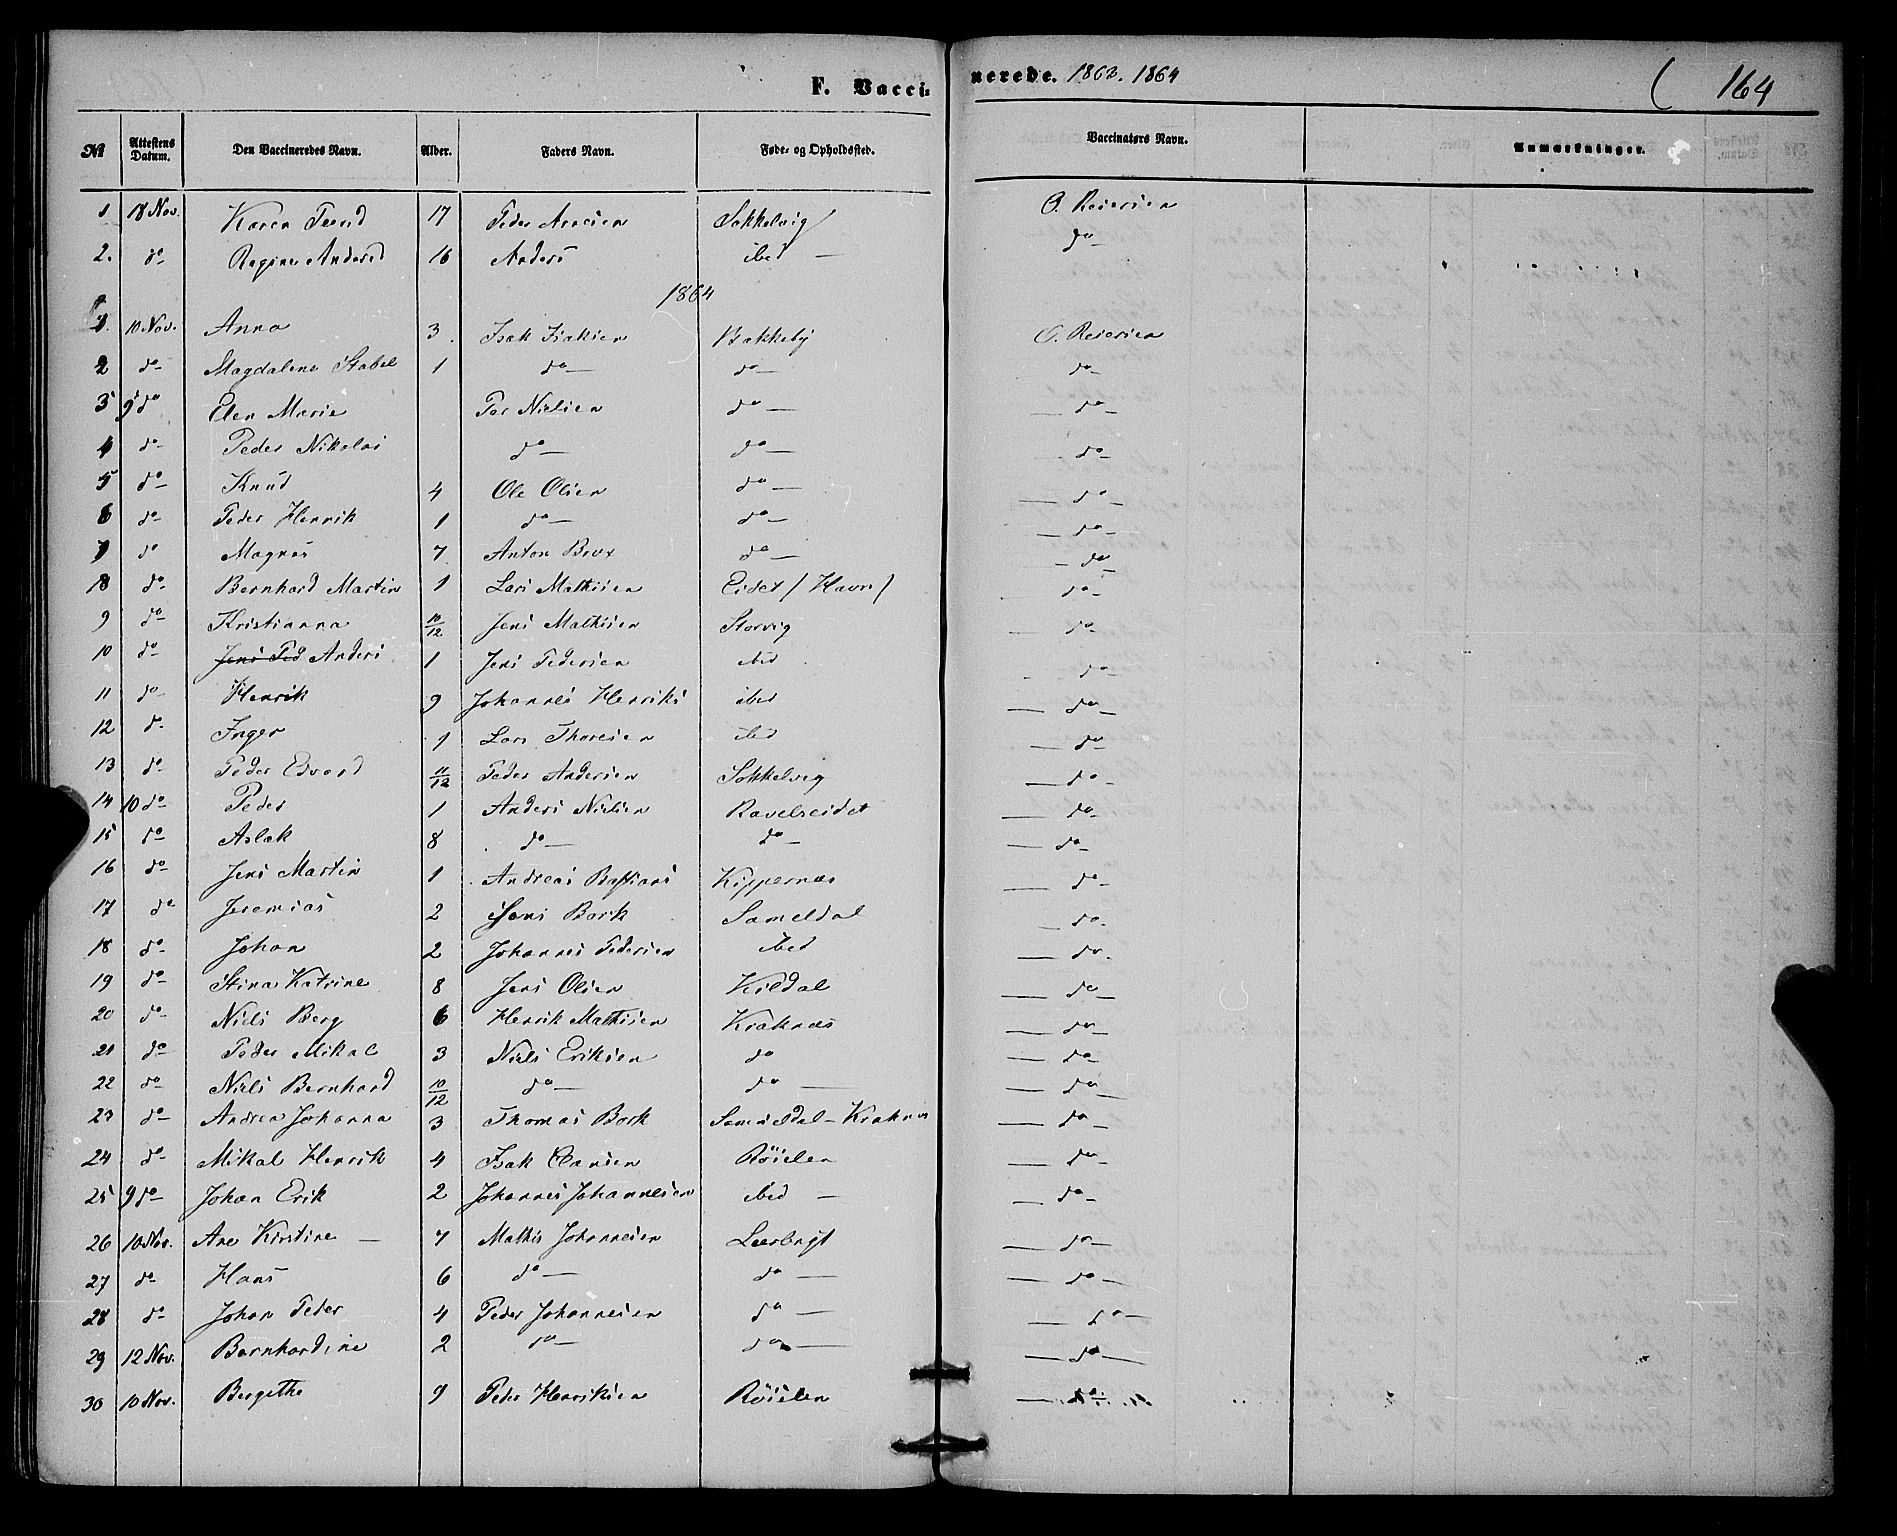 F. Vaccinerede. 1863. 1864 ( 164
No Attestens Datum. Den Vaccineredes Navn. Alder. Faders Navn. Føde- og Opholdssted. Vaccinatørs Navn. Anmærkninger.
1 18 Nov. Karen 17 Peder Sokkelvig O. Reiersen
2. do Regine Andersd 16 Anders ibed — do
1864
1. 10 Nov. Anna 3 Isak Isaksen Bakkeby O. Reiersen
2 do Magdalene Stabel 1 do do do
3 9 do Elen Marie Per Nielsen do do
4 do Peder Nikolai do do do
5 do Knud 4 Ole Olsen do do
6 do Peder Henrik 1 do do do
7 do Magnus 7 Anton do do
8 do Bernhard Martin 1 Lars Mathisen Eidet / Havn / do
9 do Kristianna 10/12 Jens Mathisen Storvig do
10 do Jens Ped Anders 1 Jens Pedersen ibed do
11 do Henrik 9 Johannes Henriks ibed do
12 do Inger 1 Lars Thoresen ibed do
13 do Peder Edvard 11/12 Peder Andersen Sokkelvig do
14 10 do Peder 1 Anders Nielsen Ravelseidet do
15 do Aslak 8 do do do
16 do Jens Martin 1 Andreas Bastians Kippernæs do
17 do Jeremias 2 Hans Bork Sameldal do
18 do Johan 2 Johannes Pedersen ibed do
19 do Stina Katrine 8 Jens Olsen Kildal do
20 do Niels Berg 6 Henrik Mathisen Kraknæs do
21 do Peder Mikal 3 Niels Eriksen do do
22 do Niels Bernhard 10/12 do do do
23 do Andrea Johanna 3 Thomas Bork Sameldal - Kraknæs do
24 do Mikal Henrik 4 Isak Clausen Röielen do
25 9 do Johan Erik 2 Johannes Johannesen ibed — do
26 10 Nov. Ane Kirstine — 7 Mathis Johannesen Leerbugt do
27 do Hans 6 do do do
28 do Johan Peder 4 Peder Johannesen do do
29 12 Nov. Bernhardine 2 do do do
30 10 Nov. Bergithe 9 Peder Henriksen Röielen do